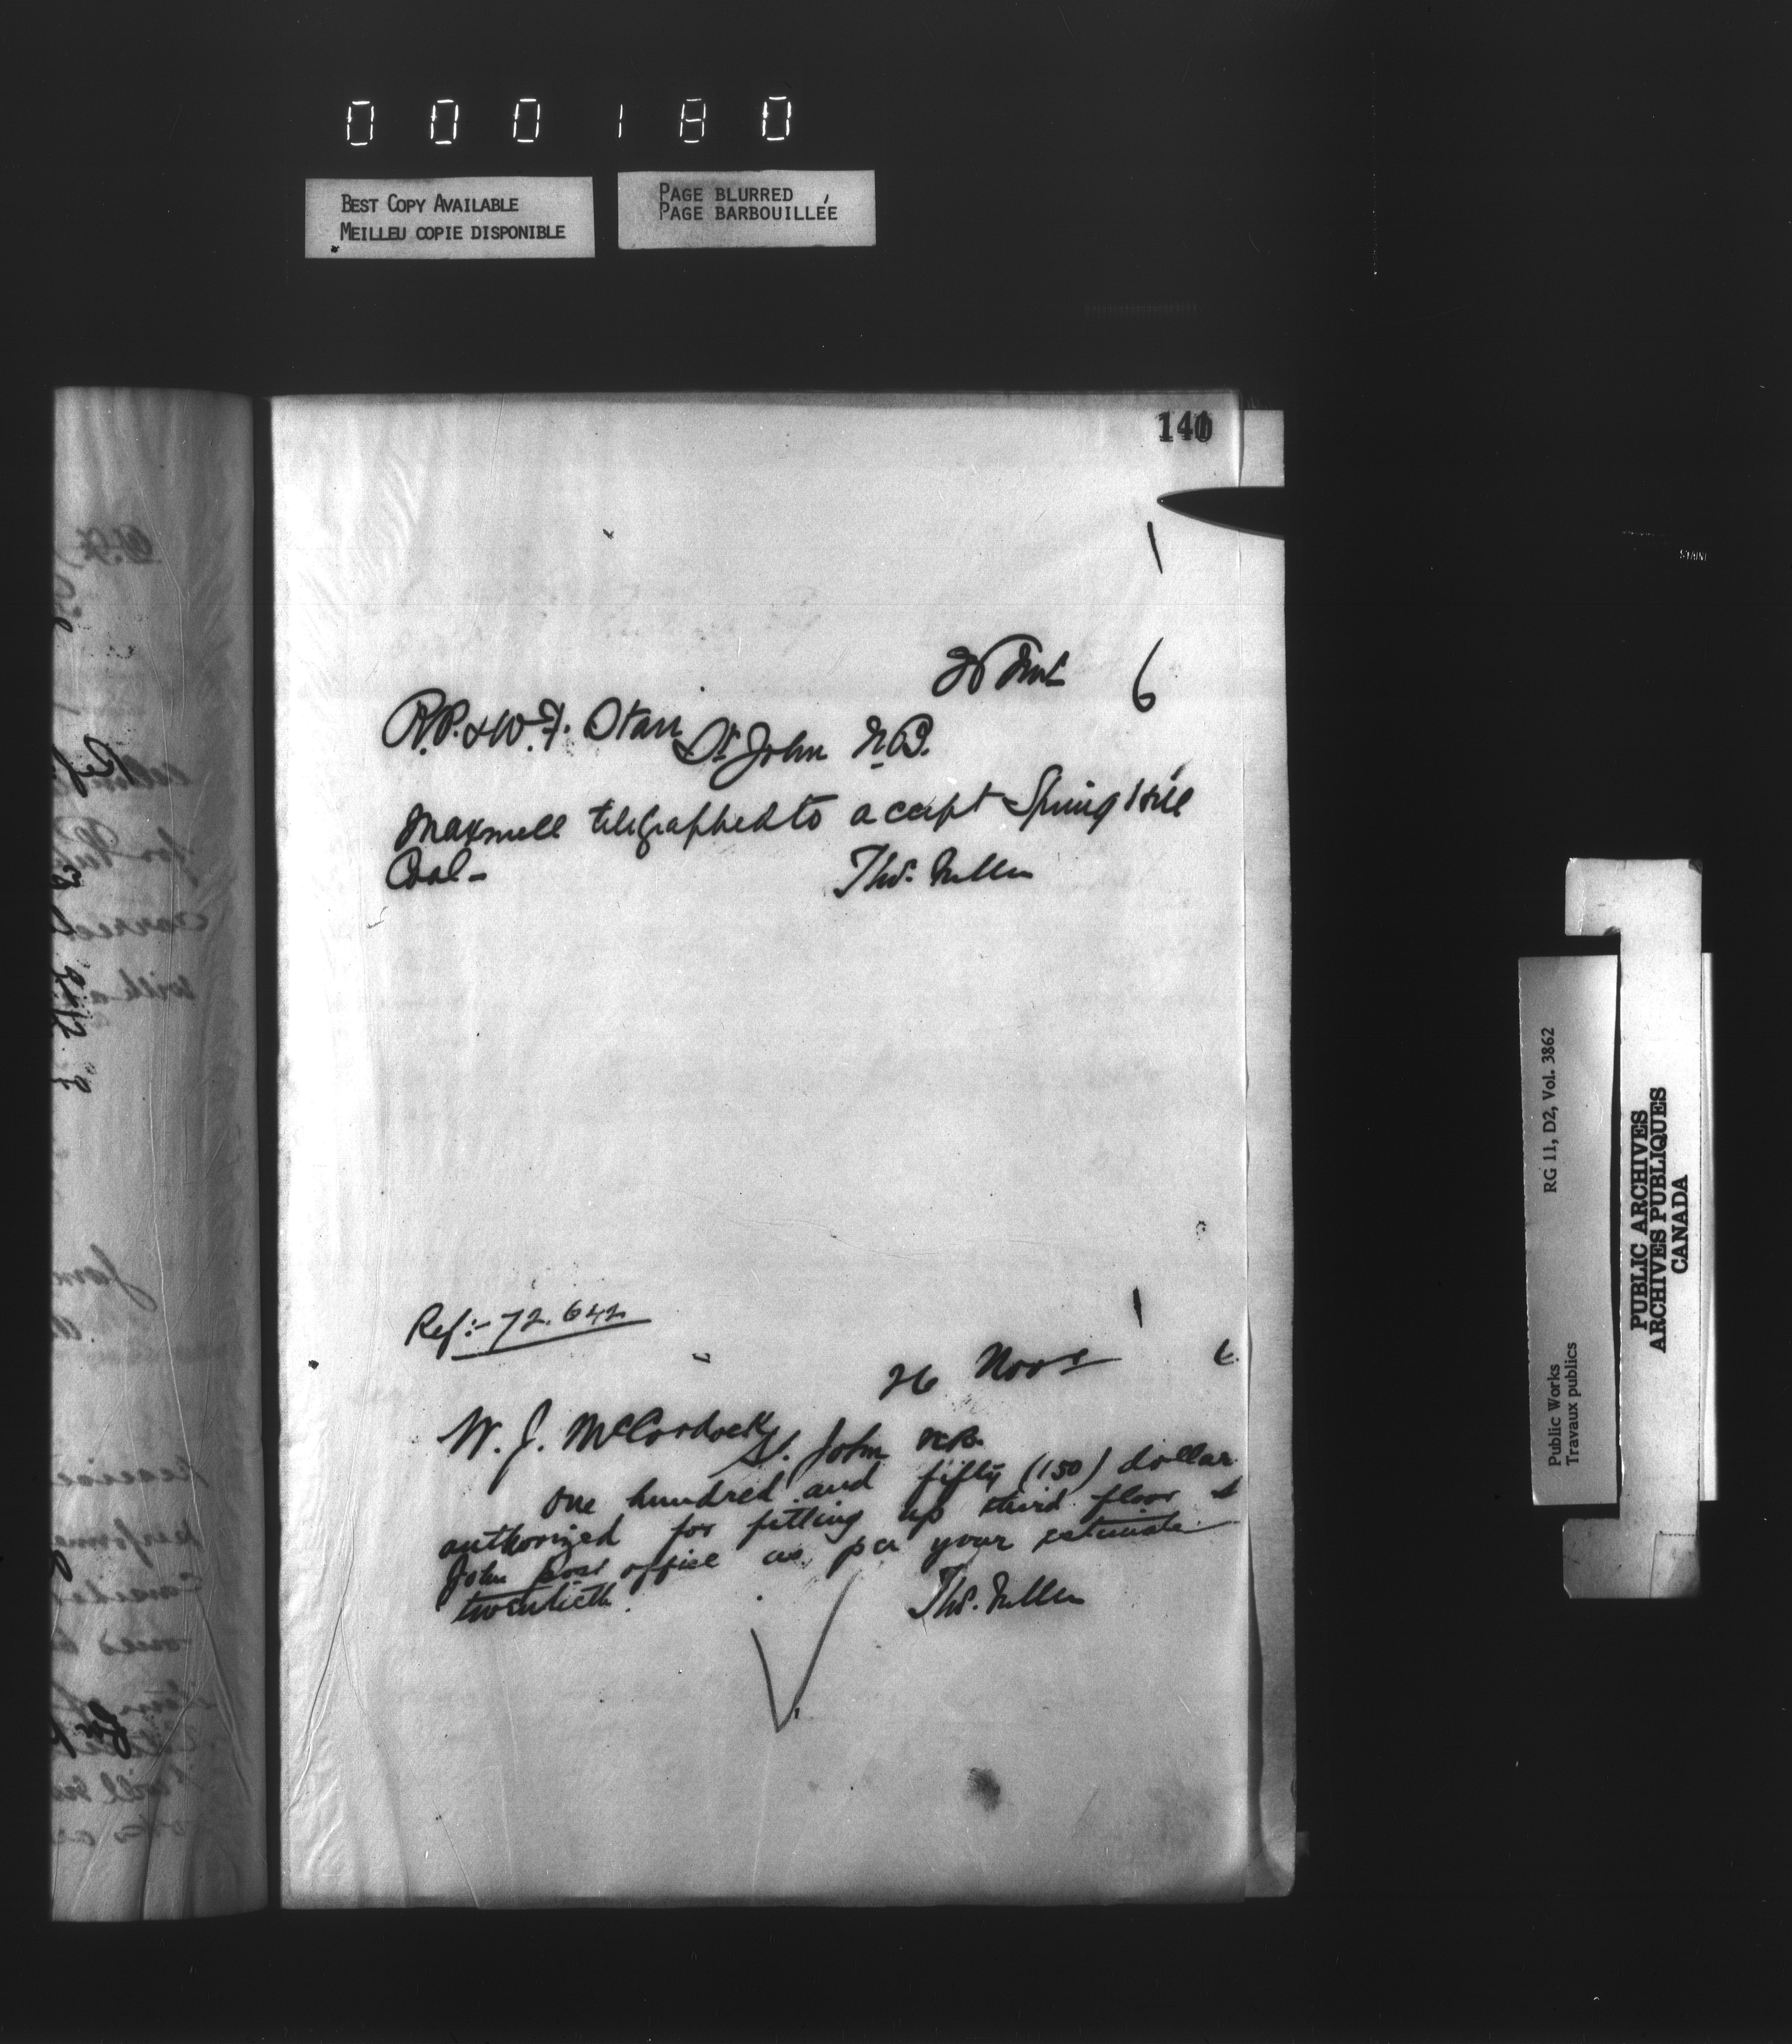 000180
BEST COPY AVAILABLE
MEILLEU COPIE DISPONIBLE
PAGE BLURRED
PAGE BARBOUILLÉE
140
6
R.P. & W.F. Starr
St John N.B.
Maxwell telegraphed to accept Spring Hill
Coal -
Thos. Fuller
Ref:- 72.642
26 Nov
W. J. McCordock
St. John NB.
One hundred and fifty (150) dollar
authorized for fitting up third floor St
John Post office as per your estimate
twentieth.
Thos. Fuller
RG 11, D2, Vol. 3862
Public Works
Travaux publics
PUBLIC ARCHIVES
ARCHIVES PUBLIQUES
CANADA